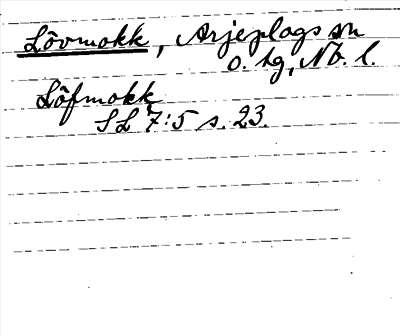 Lôvmokk, Arjeplogs sn
o. tg, Nb. l.
Lôfmokk
SL 7:5 s. 23.